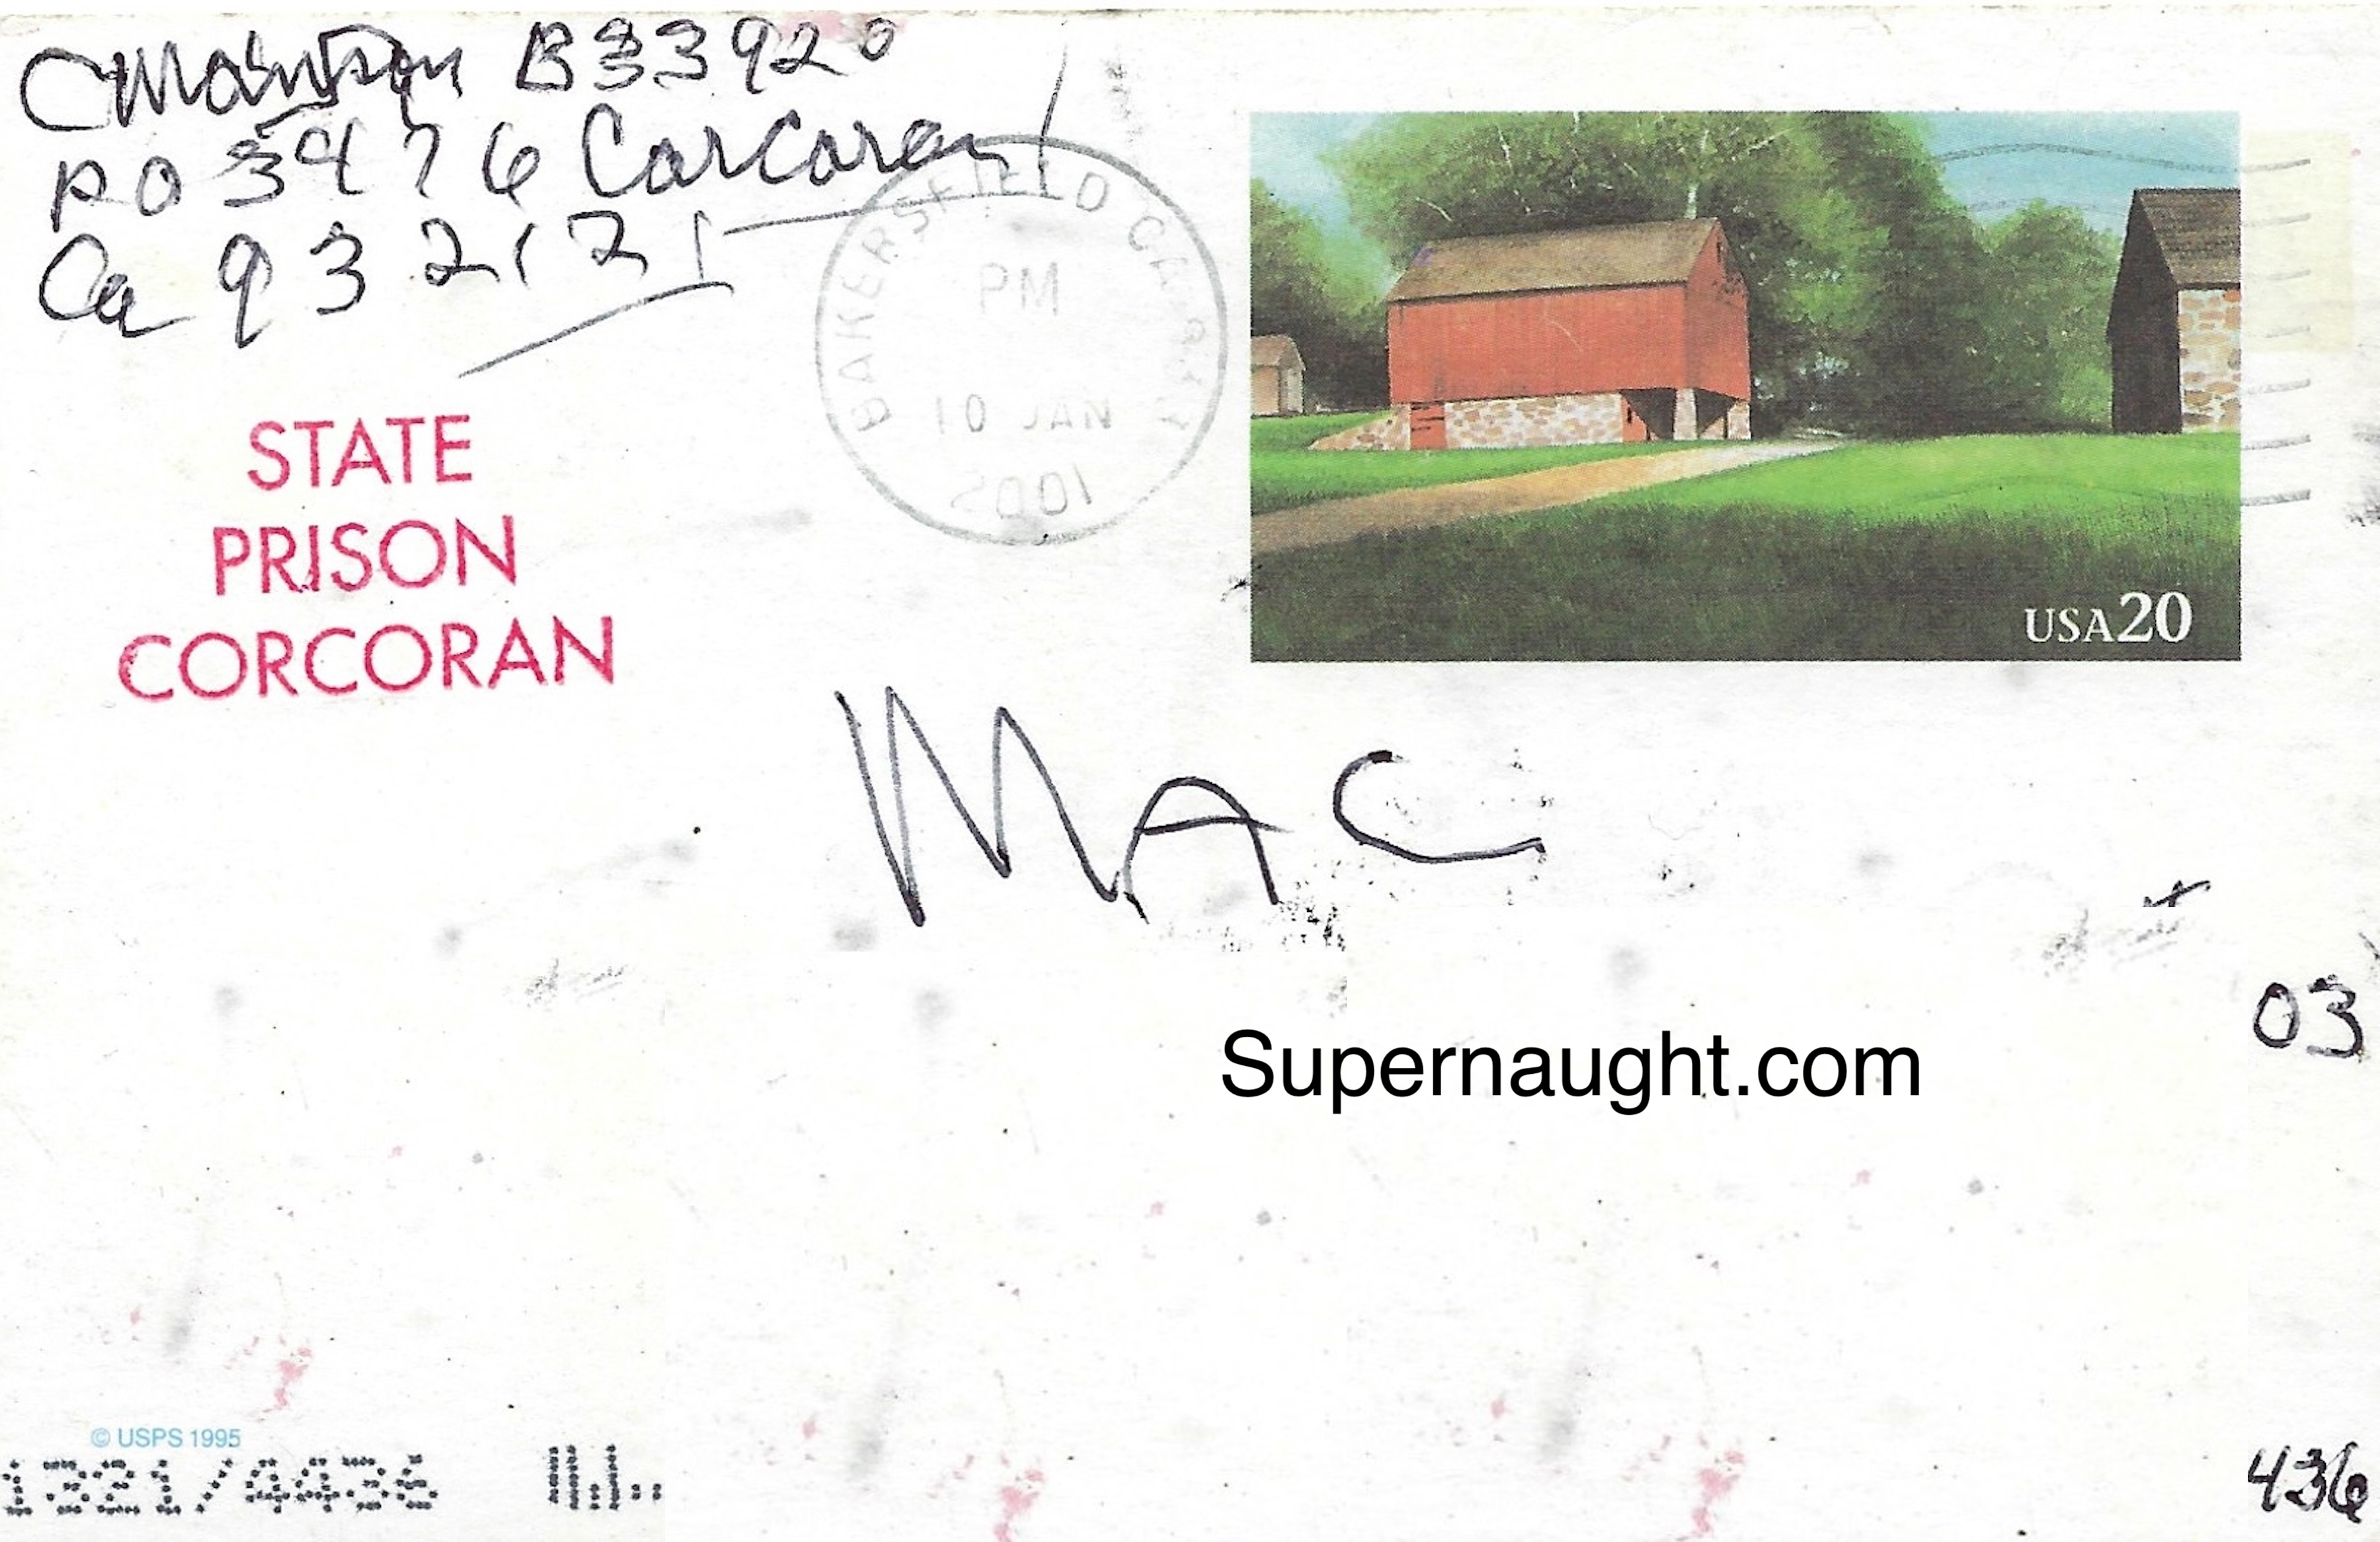 CManson B33920
PO 3476 Corcoran
Ca 93212
BAKERSFIELD CA
PM
10 JAN
2001
USA20
STATE
PRISON
CORCORAN
MAC
03
Supernaught.com
© USPS 1995
436